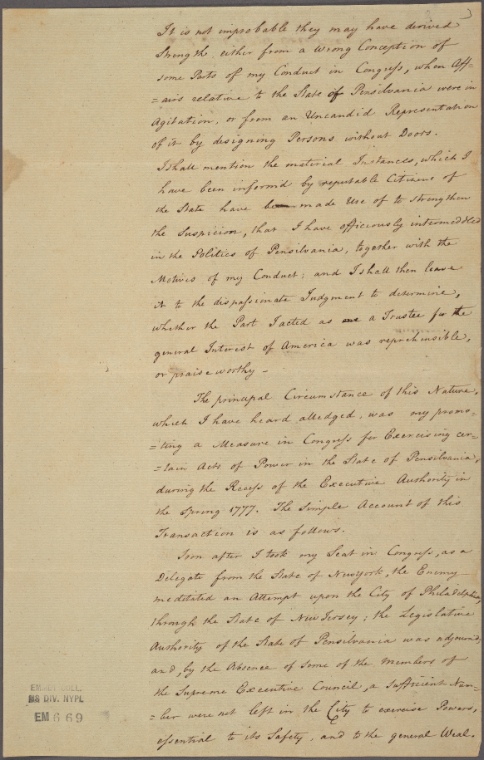 3
It is not improbable they may have derived
Strength either from a wrong Conception of
some Parts of my Conduct in Congress, when Aff-
=airs relative to the State of Pensilvania were in
Agitation, or from an Uncandid Representation
of it by designing Persons without Doors.
I shall mention the material Instances, which I
have been informd by reputable Citizens of
the State have been made Use of to strengthen
the Suspicion, that I have officiously intermeddled
in the Politics of Pensilvania, together with the
Motives of my Conduct; and I shall then leave
it to the dispassionate Judgment to determine,
whether the Part I acted as a Trustee for the
general Interest of America was reprehensible,
or praiseworthy –
The principal Circumstance of this Nature,
which I have heard alledged, was my promo-
=ting a Measure in Congress for Exercising cer-
=tain Acts of Power in the State of Pensilvania,
during the Recess of the Executive Authority in
the Spring 1777. The Simple Account of this
Transaction is as follows.
Soon after I took my Seat in Congress, as a
Delegate from the State of New York, the Enemy
meditated an Attempt upon the City of Philadelphia,
through the State of New Jersey; the Legislative
Authority of the State of Pensilvania was adjourned,
and, by the Absence of some of the Members of
the Supreme Executive Council, a sufficient Num-
=ber were not left in the City to exercise Powers,
essential to its Safety, and to the general Weal.
EMMET COLL.
MA DIV. NYPL
EM 6 6 9